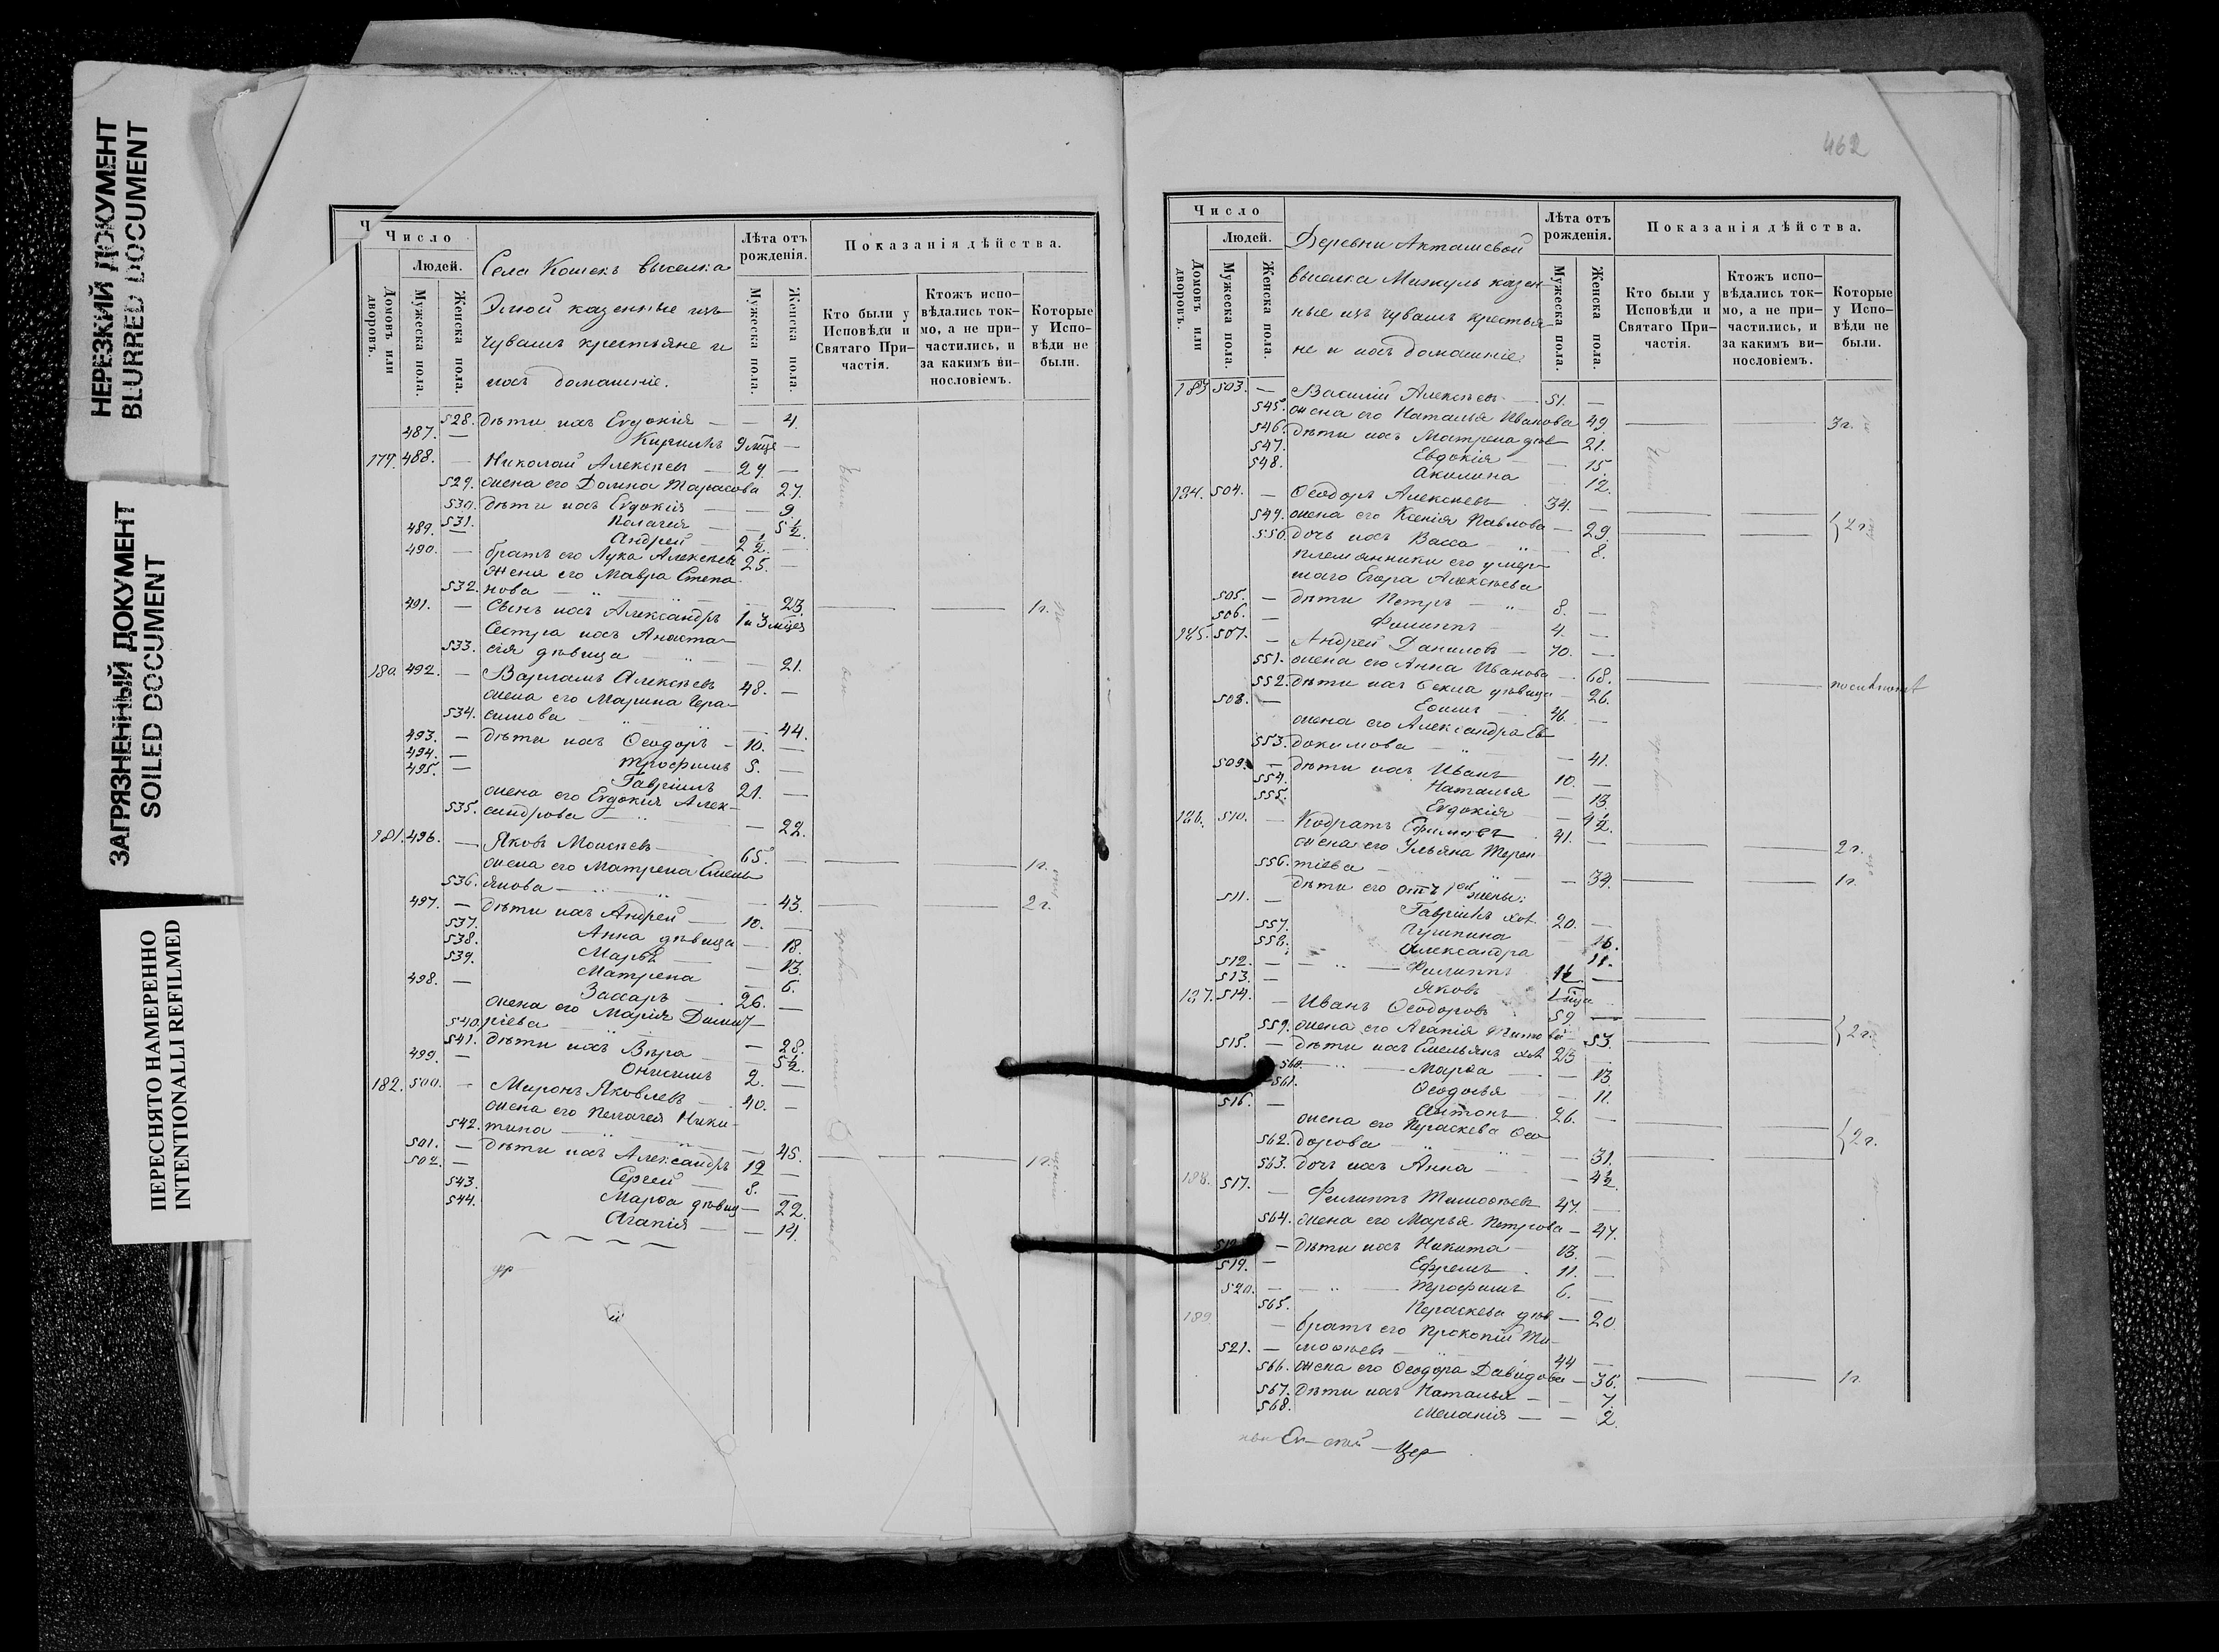 НЕРЕЗКИЙ ДОКУМЕНТ
BLURRED DOCUMENT
ЗАГРЯЗНЕННЫЙ ДОКУМЕНТ
SOILED DOCUMENT
ПЕРЕСНЯТО НАМЕРЕННО
INTENTIONALLI REFILMED
Ч
Число
Людей.
Домовъ или дворовъ.
Мужеска пола.
Женска пола.
Села Кошекъ выселка
казенные изъ
чувашъ крестьяне и
ихъ домашніе.
Лѣта отъ рожденія.
Мужеска пола.
Женска пола.
Показанія дѣйства.
Кто были у Исповѣди и Святаго Причастія.
Ктожъ исповѣдались токмо, а не причастились, и за какимъ винословіемъ.
Которые у Исповѣди не были.
528. дѣти ихъ Евдокія — — 4.
487. — Кириллъ 9 мѣце —
179. 488. — Николай Алексѣевъ — 29 —
529. жена его Домна Тарасова 27.
530. дѣти ихъ Евдокія — — 9.
531. Пелагия — — 5½.
489. — Андрей — 2½. —
490. — братъ его Лука Алексѣевъ 25. —
жена его Мавра Степа-
532. нова — 23.
491. — Сынъ ихъ Александръ 1 и 3 мѣцев — — 1 г.
Сестра ихъ Анаста-
533. сія дѣвица — — 21.
180. 492. — Варламъ Алексѣевъ 48. —
жена его Марина Гера-
534. симова — — 44.
493. — дѣти ихъ Ѳеодоръ — 10. —
494. — Трофимъ 8. —
495. — Гавріилъ 21. —
жена его Евдокия Алек-
535. сандрова — — 22.
181. 496. — Яковъ Моисеевъ — 65. — — — 1 г.
жена его Матрена Емель-
536. янова — — 43. — — 2 г.
497. — дѣти ихъ Андрей — 10. —
537. Анна дѣвица — 18.
538. Марѳа — — 13.
539. Матрена — 6.
498. — Захаръ — 26. —
жена его Марія Дмит-
540. ріева — — 28.
541. дѣти ихъ Вѣра — — 5½.
499. — Онисимъ 2. —
182. 500. — Миронъ Яковлевъ — 40. —
жена его Пелагея Ники-
542. тина — — 45. — — 1 г.
501. — дѣти ихъ Александръ 12 —
502. — Сергей — 8. —
543. Марѳа дѣвиц — 22.
544. Агапія — — 14.
462
Число
Людей.
Домовъ или дворовъ.
Мужеска пола.
Женска пола.
Деревни Акташевой
выселка казен-
ные изъ чувашъ крестья-
не и ихъ домашніе.
Лѣта отъ рожденія.
Мужеска пола.
Женска пола.
Показанія дѣйства.
Кто были у Исповѣди и Святаго Причастія.
Ктожъ исповѣдались токмо, а не причастились, и за какимъ винословіемъ.
Которые у Исповѣди не были.
183 503. — Василій Алексѣевъ — 51. —
545. жена его Наталья Иванова 49. — — 3 г.
546. дѣти ихъ Матрена дѣв — 21.
547. Евдокія — — 15.
548. Акилина 12.
184. 504. — Ѳеодоръ Алексѣевъ 34. — — —
549. жена его Ксенія Павлова — 29. — — 2 г.
550. дочь ихъ Васса — — 8.
племянники его умер-
шаго Егора Алексѣева
505. — дѣти Петръ — 8. —
506. — Филиппъ — 4. —
185. 507. — Андрей Даниловъ — 70. —
551. жена его Анна Иванова — 68. — —
552. дѣти ихъ Ѳекла дѣвица — 26.
508. — 46. —
жена его Александра Ев-
553. докимова — — 41.
509. — дѣти ихъ Иванъ 10. —
554. Наталья — 13.
555. Евдокія — — 4½.
186. 510. — Кодратъ Ефимовъ 41. — — — 2 г.
жена его Ульяна Терен-
556. тіева — — 34. — — 1 г.
дѣти его отъ 1ой жены:
511. — Гавріилъ хол. 20. —
557. — 16.
558. Александра 11.
512. — — Филиппъ —
513. — Яковъ —
187. 514. — Иванъ Ѳеодоровъ 59 — — —
559. жена его Агапія Титова — 53. — — 2 г.
515. — дѣти ихъ Емельянъ хол. 23 —
560. — Марѳа — — 13.
561. Ѳеодосья — — 11.
516. — Антонъ 26. —
жена его Праскева Ѳео-
562. дорова — — 31. — — 2 г.
563. дочь ихъ Анна — — 4½.
188. 517. — Филиппъ Тимоѳеевъ 47. —
564. жена его Марья Петрова — 47.
518. — дѣти ихъ Никита — 13. —
519. — Ефремъ 11. —
520. — — Трофимъ 6. —
565. Праскева дѣв — 20.
189. — братъ его Прокопій Ти-
521. — моѳеевъ — 44 —
566. жена его Ѳеодора Давидова — 36. — — 1 г.
567. дѣти ихъ Наталья — — 7.
568. Меланія — — 2.